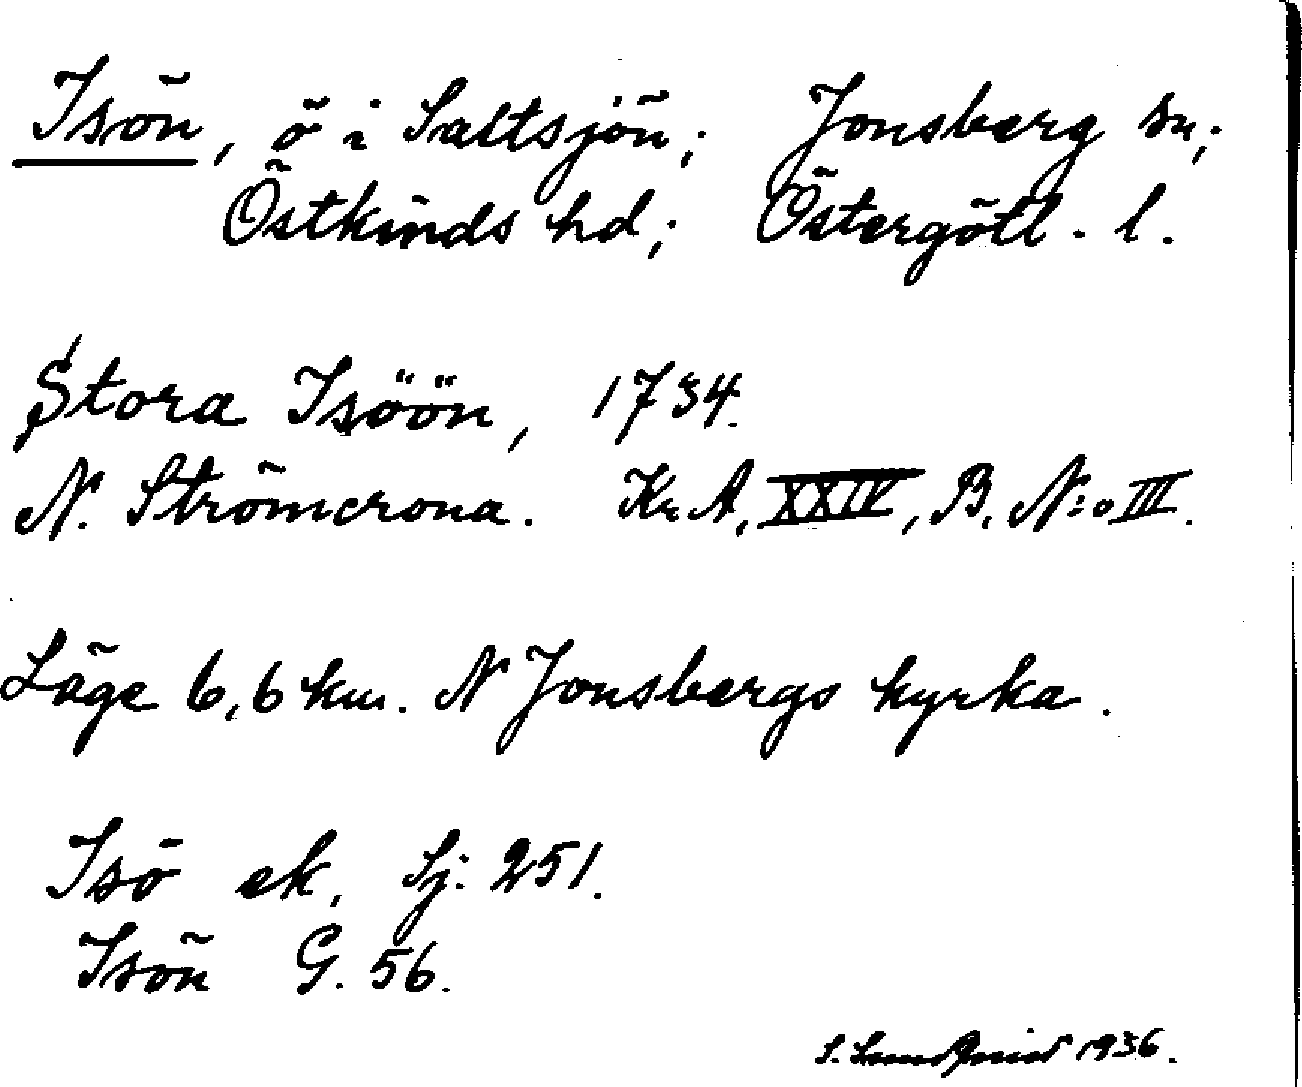 Isön, ö i Saltsjön; Jonsberg sn;
Östkinds hd; Östergötl. l.
Stora Isöön, 1734.
N. Strömcrona. Kr. A, XXIV, B, N:o III.
Läge 6,6 km. N Jonsbergs kyrka.
Isö ek, Sj: 251.
Isön G. 56.
S. Lundqvist 1936.